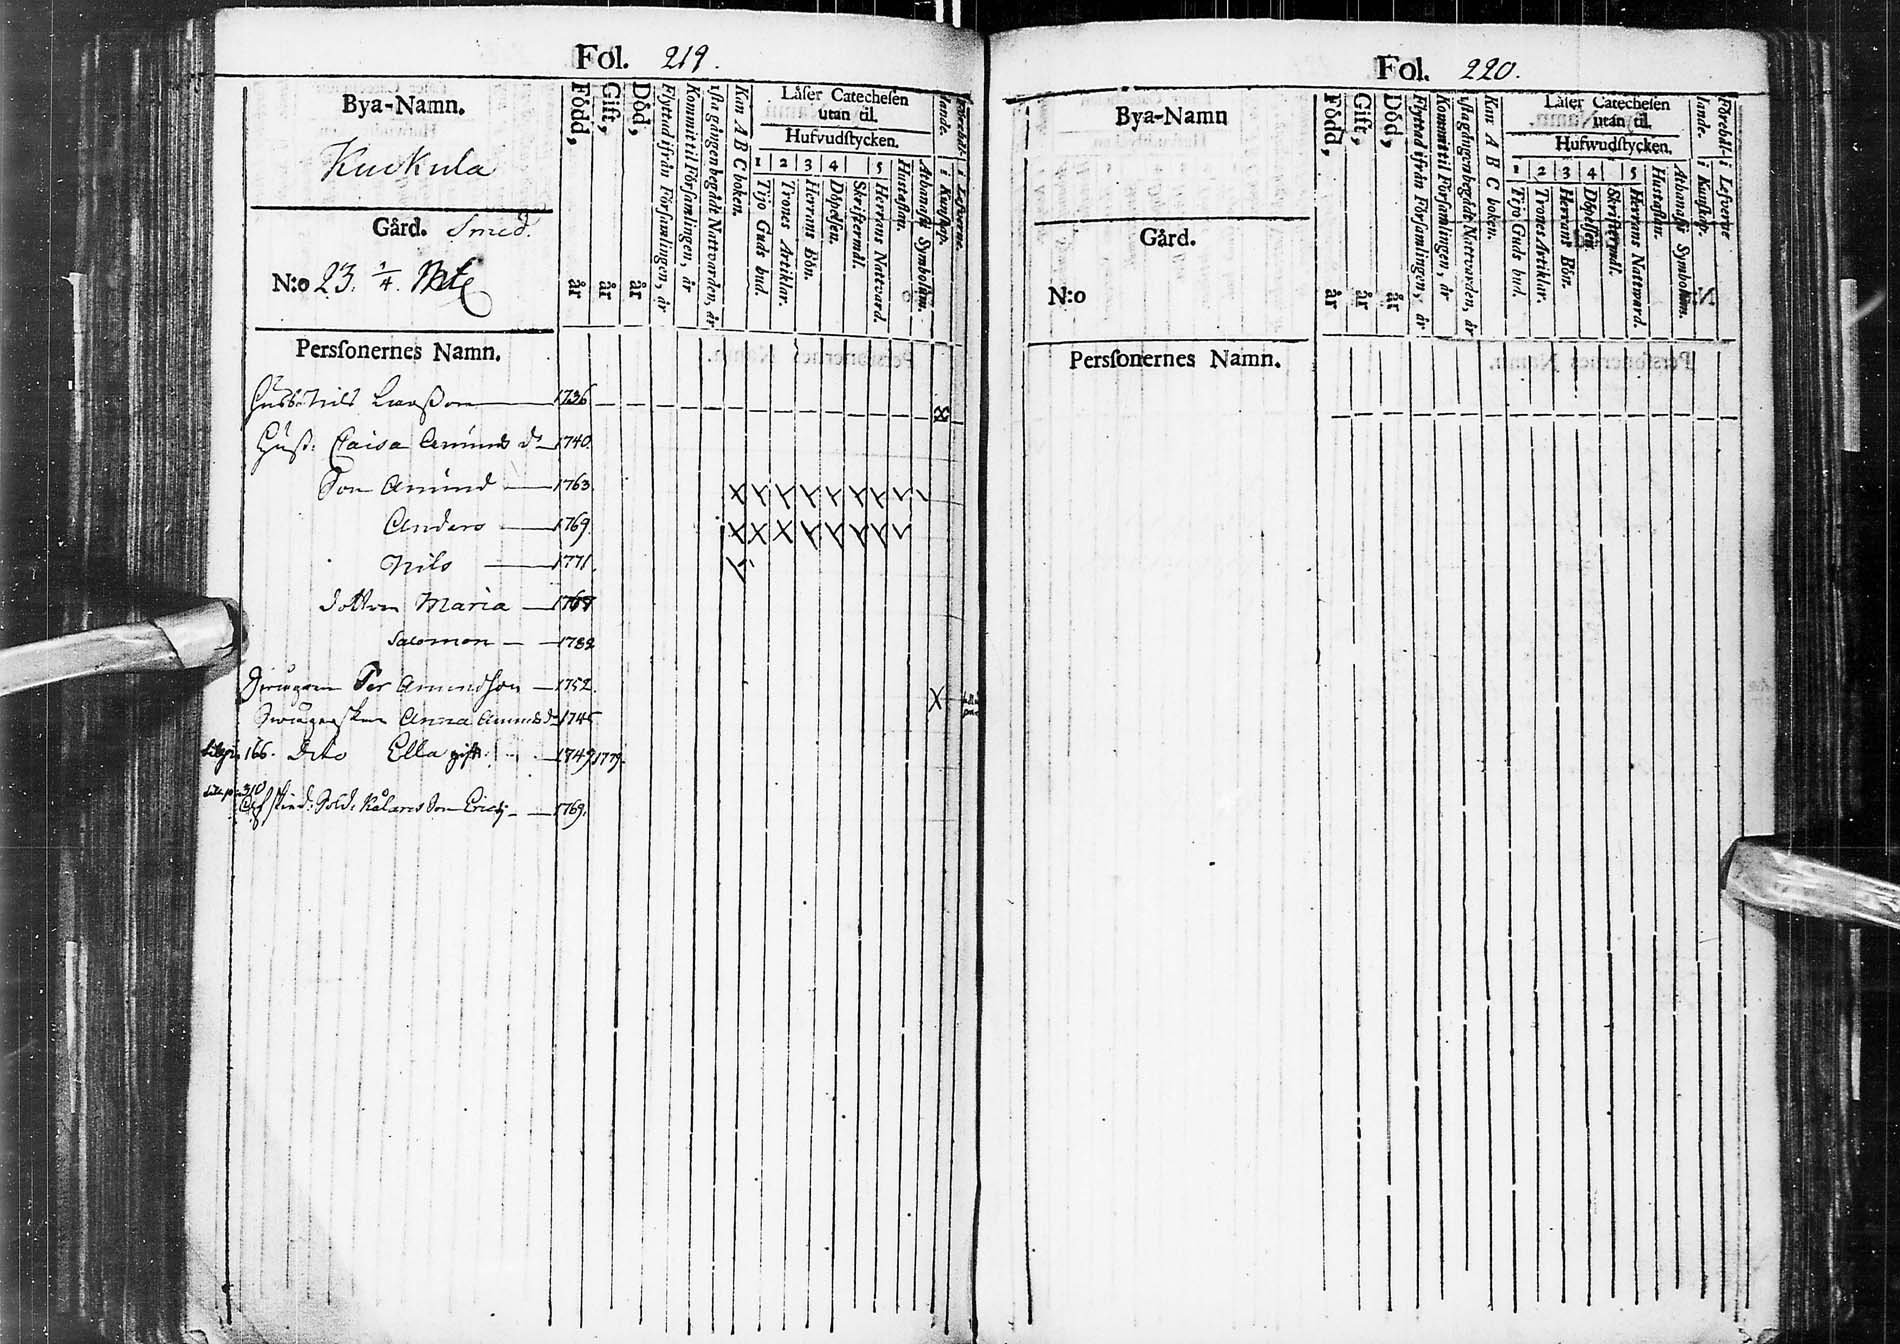 Fol. 219.
Bya-Namn.
Kuckula
Gård. Smed.
N:o 23. 1/4. Mtl
Persſonernes Namn.
Född, år
Gift, år
Död, år
Flyttad ifrån Förſamlingen, år
Kommit til Förſamlingen, år
1ſta gången begådt Nattvarden, år
Kan A B C boken.
Läſer Catecheſen
utan til.
Hufvudſtycken.
1 2 3 4 5
Tijo Guds bud.
Trones Artiklar.
Herrans Bön.
Döpelſen.
Skriftermål.
Herrans Nattvard.
Huſtaflan.
Athanaſii Symbolum.
i Kunſkap.
i Lefverne.
Nils Larsſon 1736
Huſt: Caisa Amunds dr 1740
Son Amund 1763.
Anders 1769.
Nils 1771.
dottren Maria
Salomon 1782
Per Amundſon 1752.
Anna Amunds dr 1745
166. Dito Ella gift 1749 1779.
310
Sold: Son Erich 1769.
Fol. 220.
Bya-Namn
Gård.
N:o
Persſonernes Namn.
Född, år
Gift, år
Död, år
Flyttad ifrån Förſamlingen, år
Kommit til Förſamlingen, år
1ſta gången begådt Nattvarden, år
Kan A B C boken.
Läſer Catecheſen
utan til.
Hufwudſtycken.
1 2 3 4 5
Tijo Guds bud.
Trones Artiklar.
Herrans Bön.
Döpelſen.
Skriftermål.
Herrans Nattward.
Huſtaflan.
Athanaſii Symbolum.
i Kunſkap.
i Lefverne